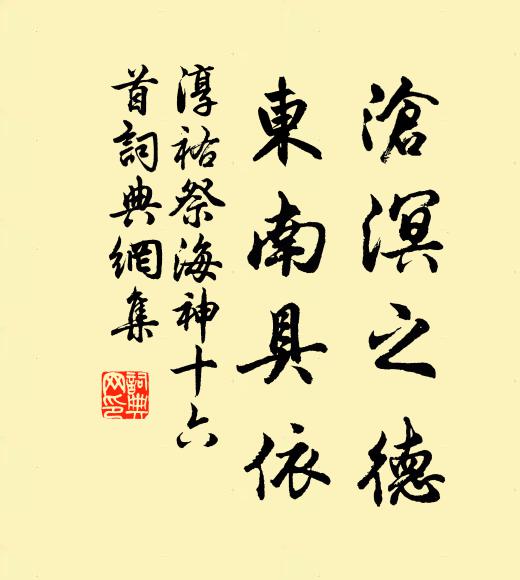 滄溟之德
東南具依
淳祐祭海神十六
首詞典網集
詞典
网印